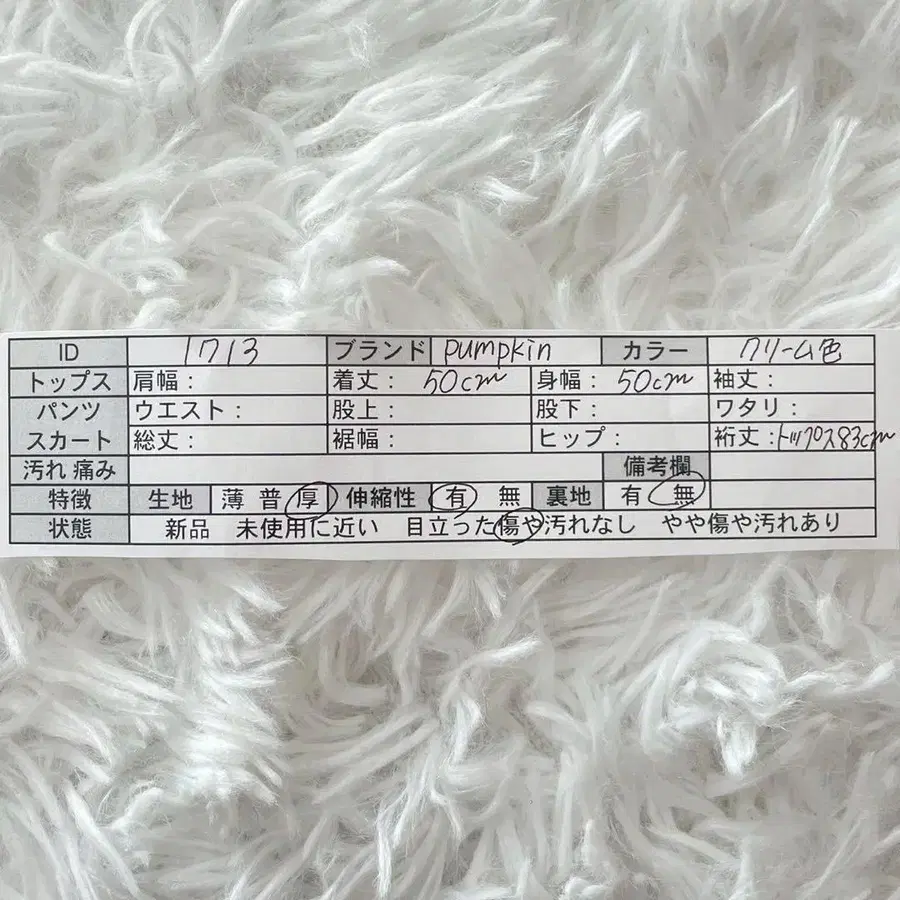 ID 1713 ブランド pumpkin カラー クリーム色
トップス 肩幅： 着丈： 50cm 身幅： 50cm 袖丈：
パンツ ウエスト： 股上： 股下： ワタリ：
スカート 総丈： 裾幅： ヒップ： 裄丈：トップス83cm
汚れ 痛み 備考欄
特徴 生地 薄 普 厚 伸縮性 有 無 裏地 有 無
状態 新品 未使用に近い 目立った傷や汚れなし やや傷や汚れあり